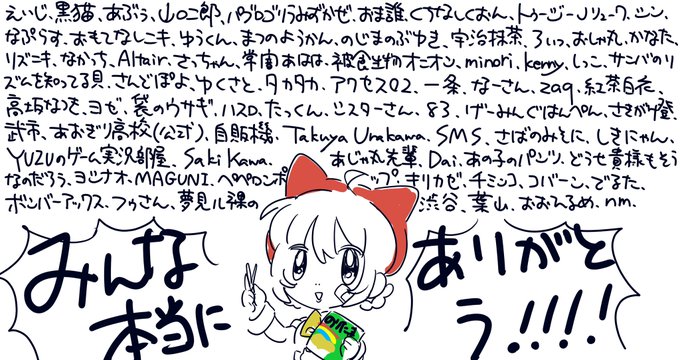 えいじ、黒猫、あぶぅ、山口二郎、パブロゴリラみずかぜ、おま誰、くちなしくおん、トゥージーJリューワ、シン、
なぷらす、おもてなしニキ、ゆうくん、まつのようかん、のじまのぶゆき、宇治抹茶、ろいっ、おしゃ丸、かなた、
リズニキ、ながっち、Altair、さっちゃん、常闇あはは、被食生物オニオン、minori、kenny、しっこ、サンバのリ
ズムを知ってる貝、さんどぽよ、ゆくさと、タカタカ、アクセス02、一条、なーさん、zag、紅茶白花、
高坂なつき、ヨゼ、袋のウサギ、ハスロ、たっくん、シスターさん、83、げーみんぐはんぺん、さきがけ燈、
武市、あおぎり高校(公式)、自販機、Takuya Urakawa、SMS、さばのみそに、しきにゃん、
YUZUのゲーム実況部屋、Saki Kawa、あじゃ丸先輩、Dai、あの子のパンツ、どうせ貴様もそう
なのだろう、ヨシナオ、MAGUNI、ペペロンポ ップ、キリカゼ、チミンコ、コバーン、でるた、
ボンバーアックス、フゥさん、夢見ル裸の 渋谷、葉山、おおひるめ、nm、
みんな
本当に
ありがと
う!!!!